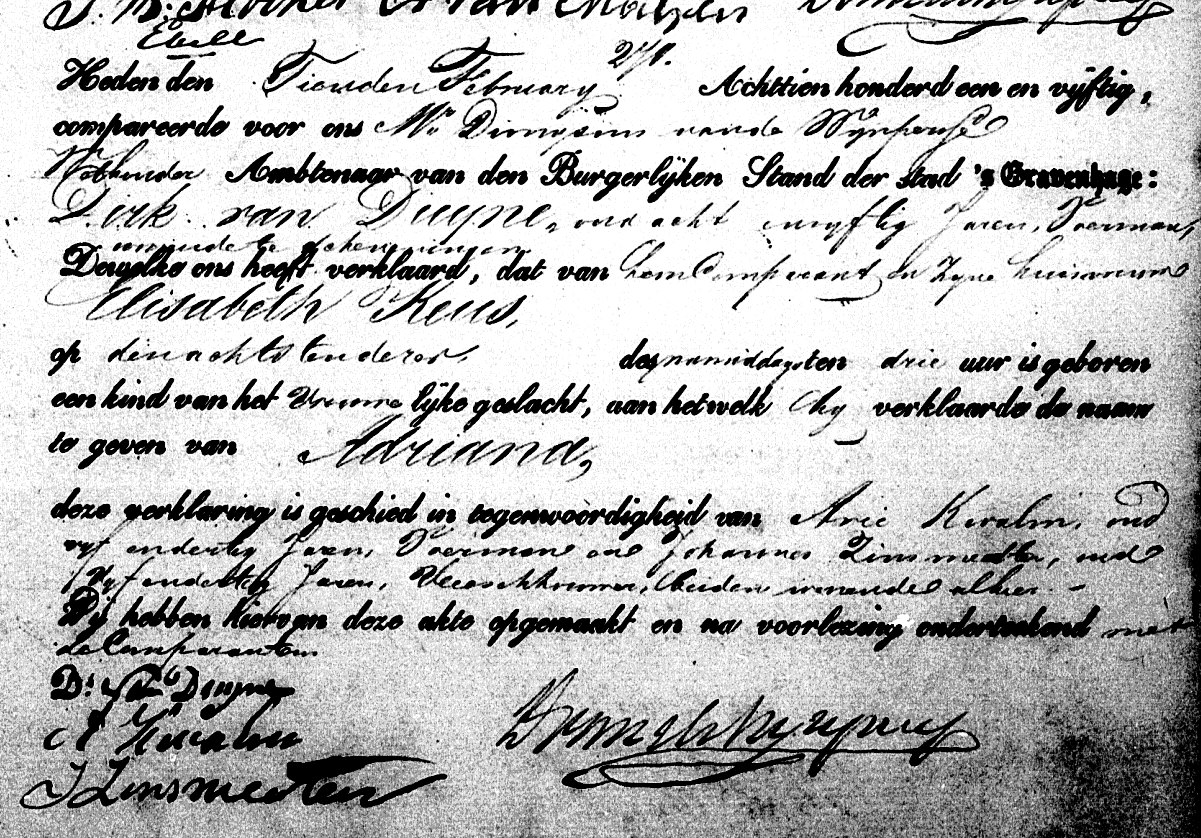 Ebell
Heden den Tienden February Achttien honderd een en vijftig,
compareerde voor ons Mr. Dionysius van de Wijnpersse
Wethouder Ambtenaar van den Burgerlijken Stand der stad 's Gravenhage:
Dirk van Duyne, oud acht en vyftig Jaren, Voerman,
wonende te Scheveningen
Dewelke ons heeft verklaard, dat van hem Comparant en zyne huisvrouw
Elisabeth Keus,
op den achtsten dezer, des namiddags ten drie uur is geboren
een kind van het Vrouwelijke geslacht, aan hetwelk hy verklaarde de naam
te geven van Adriana,
deze verklaring is geschied in tegenwoordigheid van Arie oud
vyf en dertig Jaren, Voerman en Johannes Zinsmeester, oud
vyf en dertig Jaren, beiden wonende alhier. -
Wij hebben hiervan deze akte opgemaakt en na voorlezing onderteekend met
de Comparanten.
D: v Duyne
A
J Zinsmeester